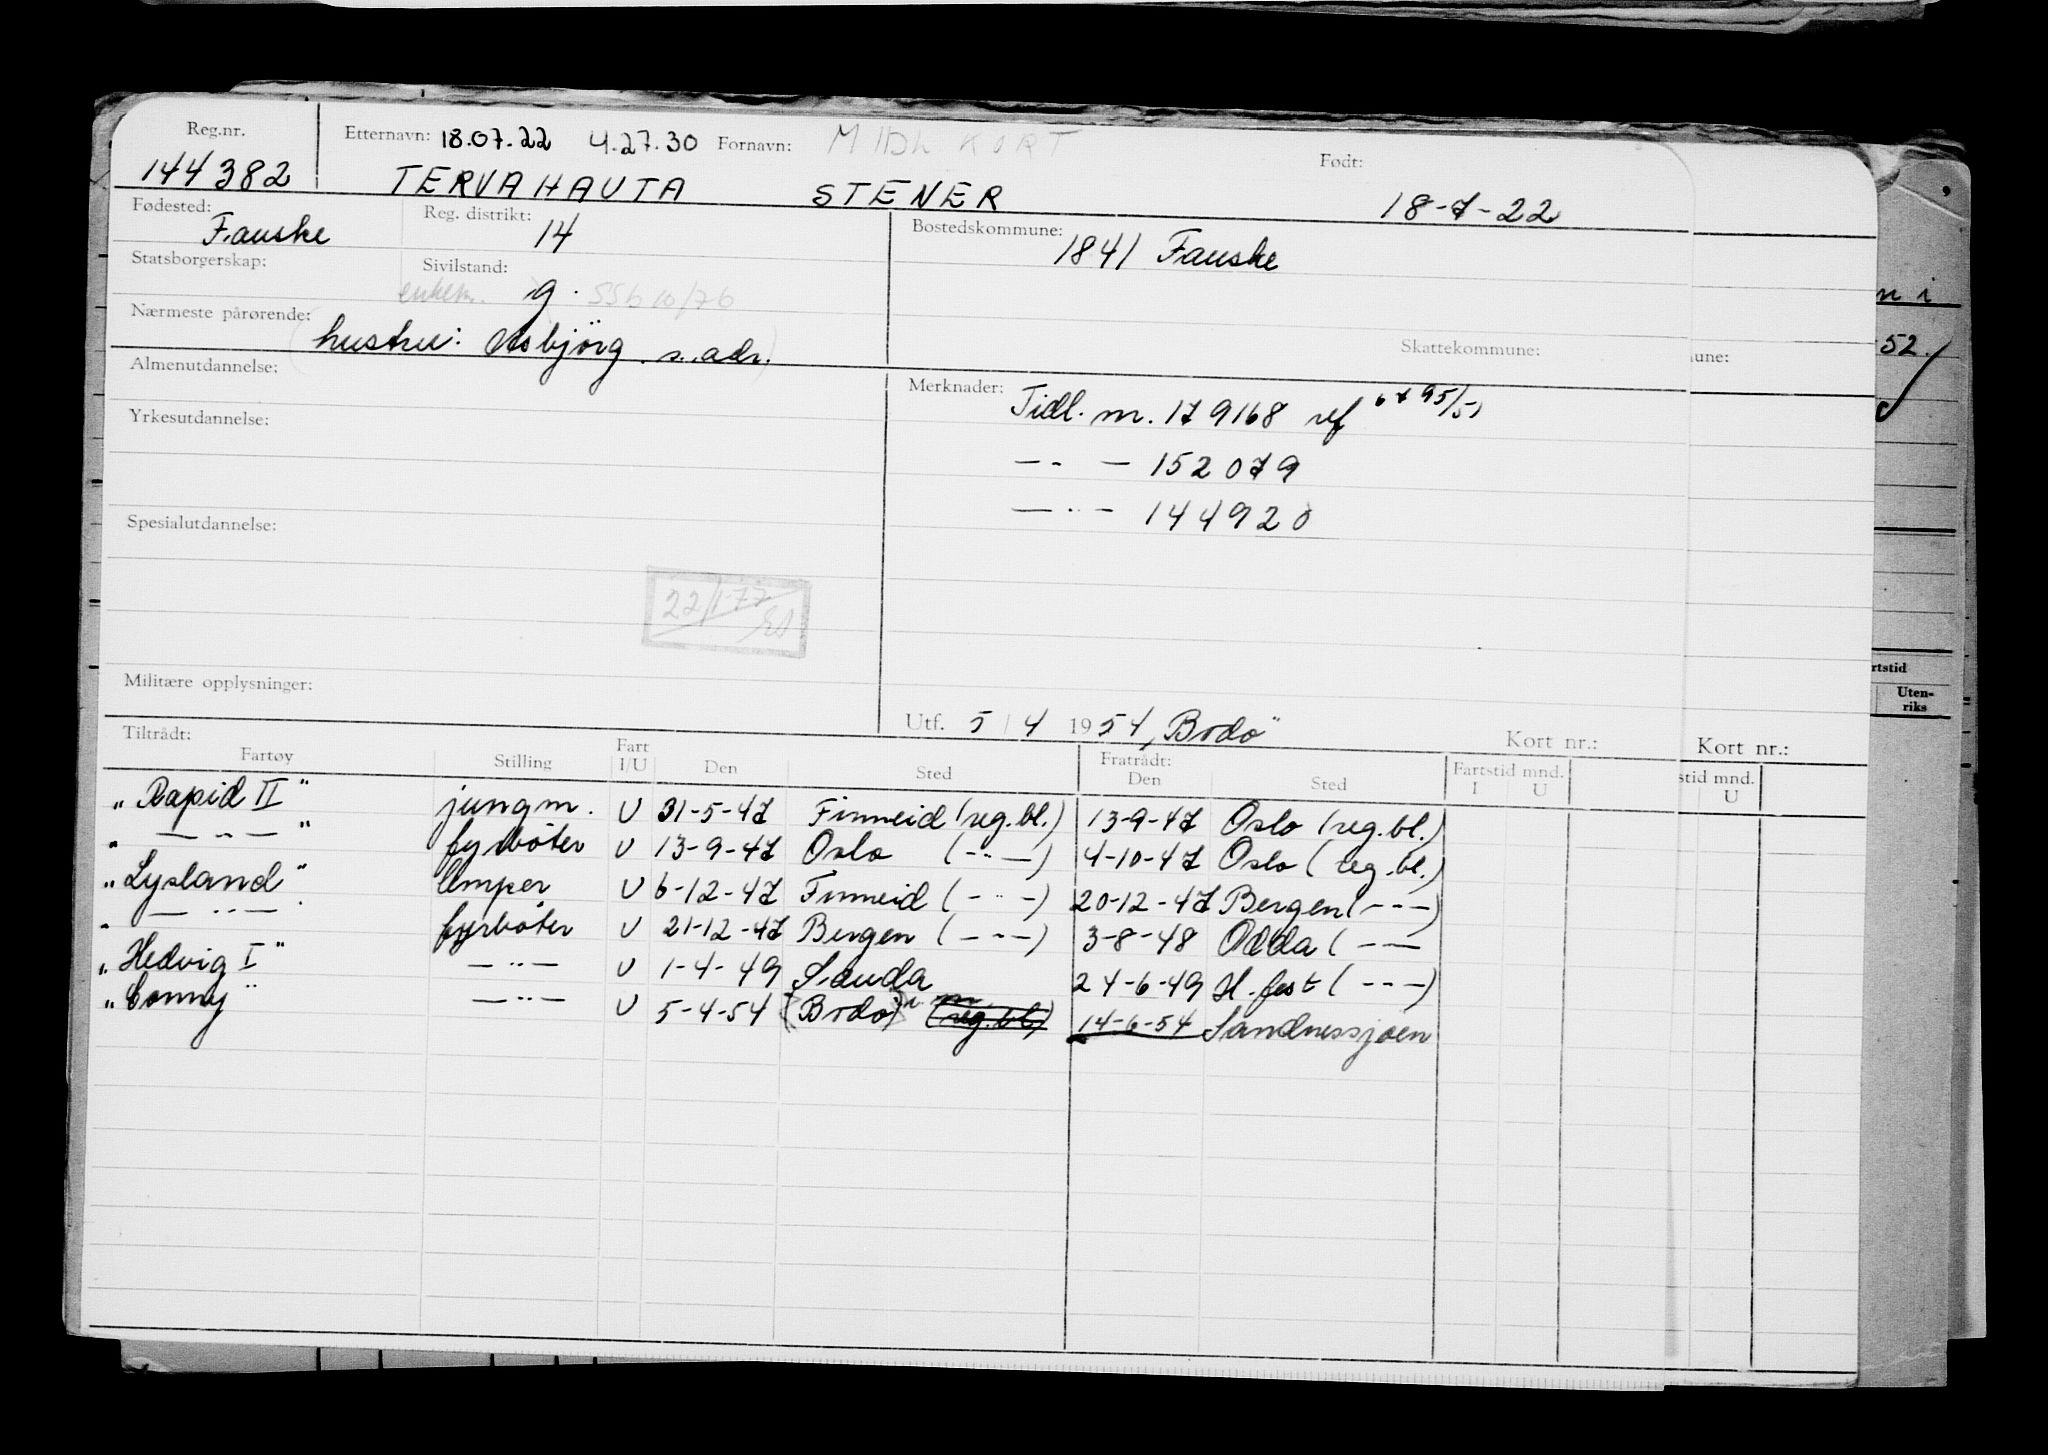 Reg.nr. Etternavn: 18.07.22 4.27.30 Fornavn: MIDL KORT Født:
144382 TERVAHAUTA STENER 18-7-22
Fødested: Fauske Reg. distrikt: 14 Bostedskommune: 1841 Fauske
Statsborgerskap: Sivilstand: enkem. g. SSb 10/76 n i
Nærmeste pårørende: Skattekommune: une: 52.
(hustru: Asbjörg s. adr.)
Almenutdannelse: Merknader: Tidl. nr. 179168 ref 6795/51
Yrkesutdannelse:
— " — 152079
— " — 144920
Spesialutdannelse:
22/1-77
Militære opplysninger: rtstid
Uten-
riks
Utf. 5/4 1954, Bodø"
Tiltrådt: Kort nr.: Kort nr.:
Fartøy Stilling Fart I/U Den Sted Fratrådt: Den Sted Fartstid mnd. I U stid mnd. U
„Rapid II" jungm. U 31-5-47 Finneid (reg.bl.) 13-9-47 Oslo (reg.bl.)
„ — " — " fyrbøter U 13-9-47 Oslo ( — " — ) 4-10-47 Oslo (reg.bl.)
„Lysland" lemper U 6-12-47 Finneid ( - " - ) 20-12-47 Bergen ( - - - )
„ — " — " fyrbøter U 21-12-47 Bergen ( — " — ) 3-8-48 Odda ( — —
„Hedvig I" — " — U 1-4-49 Sauda 24-6-49 H.fest ( - - - )
„Conny" — " — U 5-4-54 (Bodø) (reg.bl) 14-6-54 Sandnessjøen